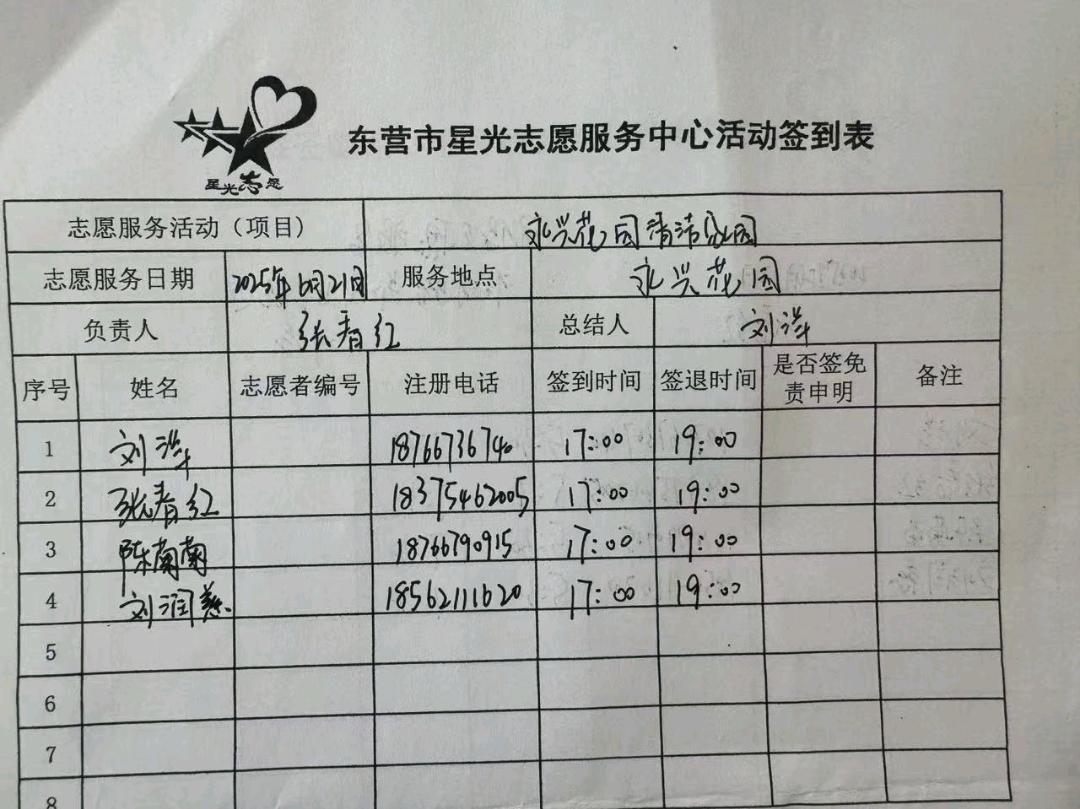 星光志愿
东营市星光志愿服务中心活动签到表
志愿服务活动（项目） 永兴花园清洁家园
志愿服务日期 2025年6月21日 服务地点 永兴花园
负责人 张春红 总结人 刘洋
序号 姓名 志愿者编号 注册电话 签到时间 签退时间 是否签免责申明 备注
1 刘洋 18766736740 17:00 19:00
2 张春红 18375462005 17:00 19:00
3 陈菌菌 18766790915 17:00 19:00
4 刘润慈 18562111620 17:00 19:00
5
6
7
8